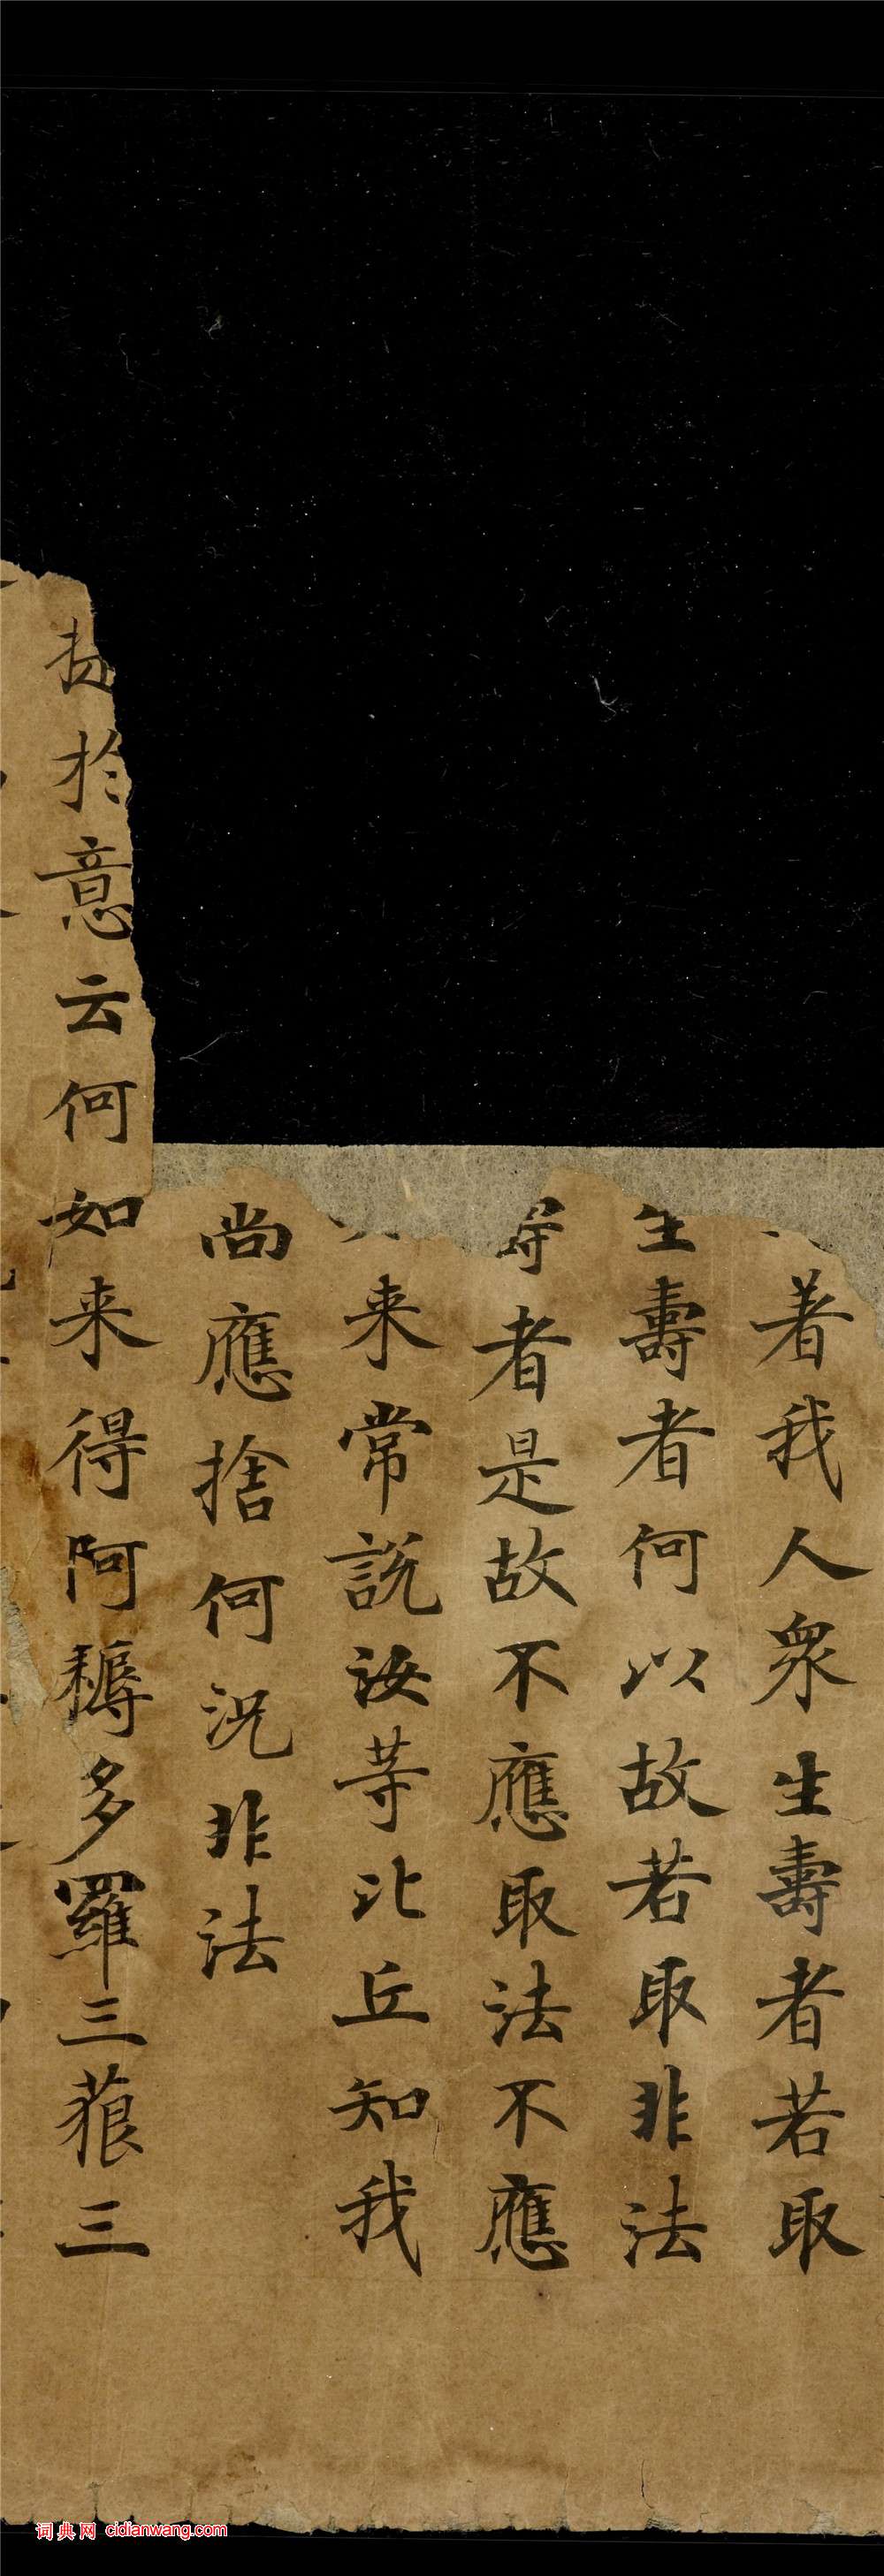 著我人衆生壽者若取
生壽者何以故若取非法
壽者是故不應取法不應
来常説汝等比丘知我
尚應捨何況非法
提於意云何如来得阿耨多羅三藐三
词典网 cidianwang.com